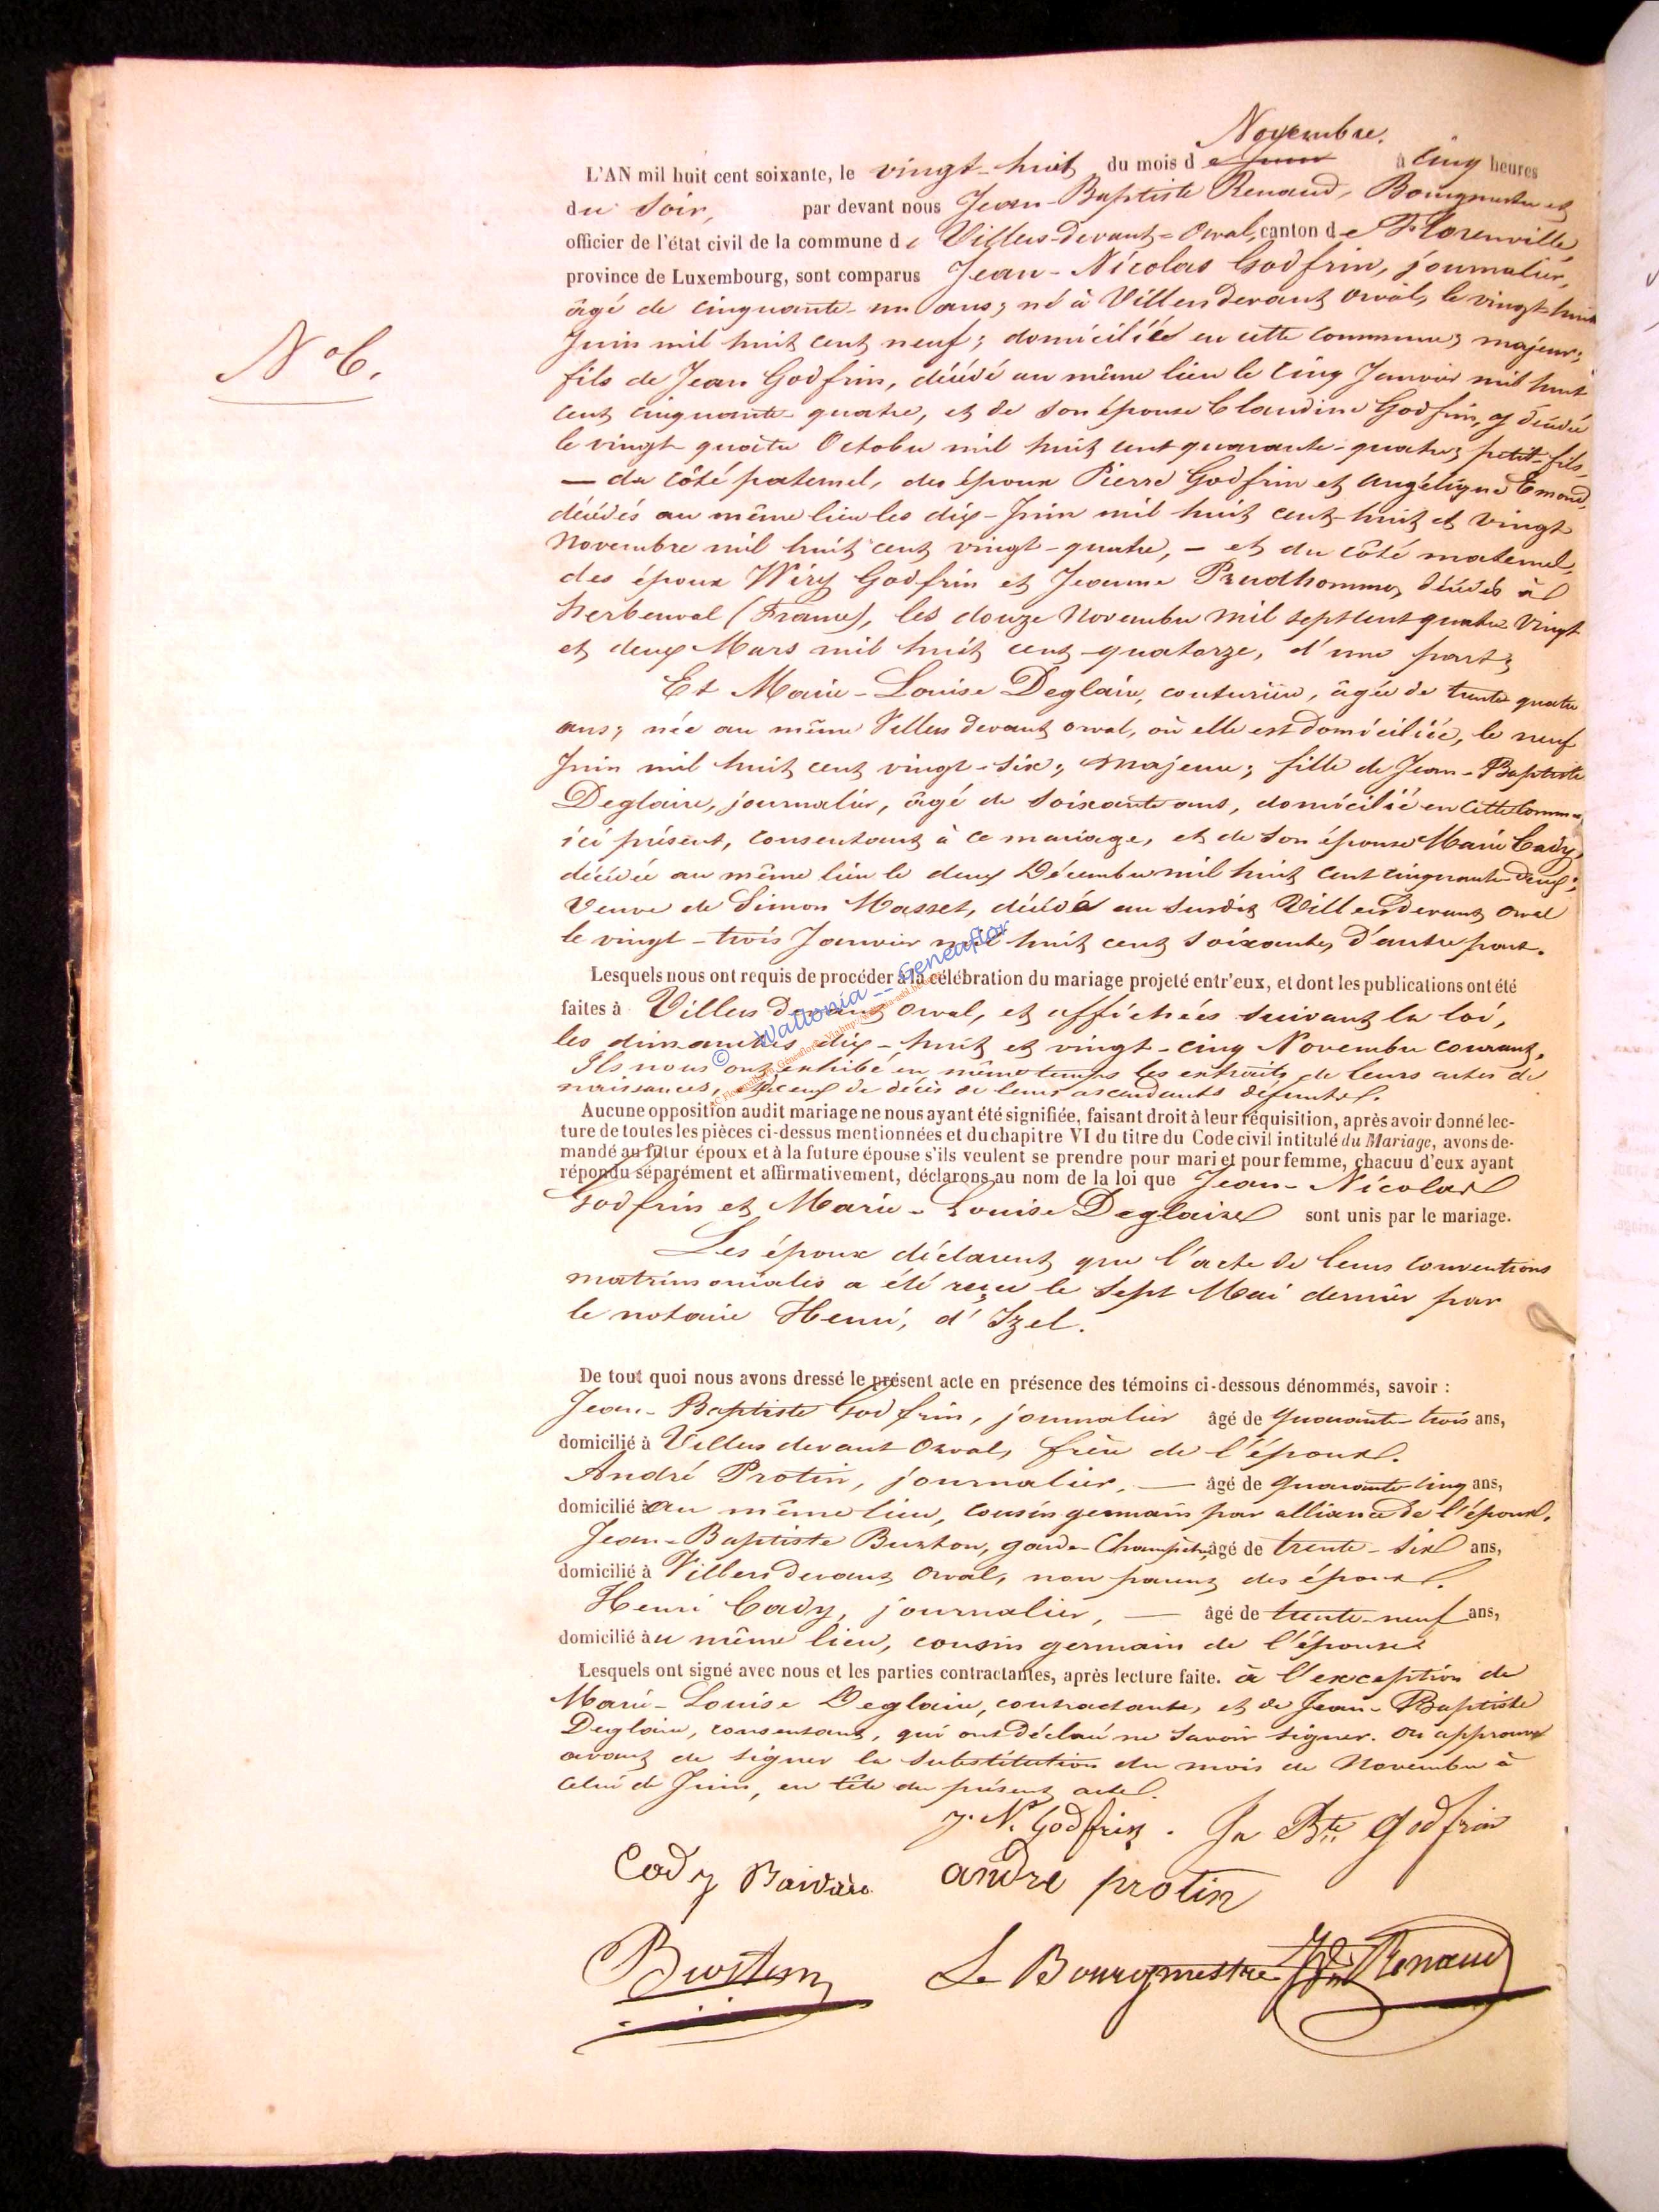 Novembre.
L'AN mil huit cent soixante, le vingt-huit du mois de Juin à cinq heures
du soir, par devant nous Jean-Baptiste Renaud, Bourgmestre et
officier de l'état civil de la commune de Villers-devant-Orval, canton de Florenville
province de Luxembourg, sont comparus Jean-Nicolas Godfrin, journalier,
âgé de cinquante-un ans; né à Villers devant Orval, le vingt-huit
Juin mil huit cent neuf; domicilié en cette commune; majeur;
fils de Jean Godfrin, décédé au même lieu le cinq Janvier mil huit
cent cinquante-quatre, et de son épouse Claudine Godfrin, y décédée
le vingt-quatre Octobre mil huit cent quarante-quatre; petit-fils,
— du côté paternel, des époux Pierre Godfrin et Angélique Emond,
décédés au même lieu les dix-Juin mil huit cent-huit et vingt
Novembre mil huit cent vingt-quatre, — et du côté maternel,
des époux Wiry Godfrin et Jeanne Prudhomme, décédés à
herbeuval (France), les douze Novembre mil sept cent quatre vingt
et deux Mars mil huit cent quatorze, d'une part;
Et Marie-Louise Deglaire, couturière, âgée de trente quatre
ans; née au même Villers devant Orval, où elle est domiciliée, le neuf
Juin mil huit cent vingt-six; majeure; fille de Jean-Baptiste
Deglaire, journalier, âgé de soixante ans, domicilié en cette comm
ici présent, consentant à ce mariage, et de son épouse Marie Cady,
décédée au même lieu le deux Décembre mil huit cent cinquante-deux;
Veuve de Simon Masset, décédé au susdit Villers devant Orval
le vingt-trois Janvier mil huit cent soixante, d'autre part.
Lesquels nous ont requis de procéder à la célébration du mariage projeté entr'eux, et dont les publications ont été
faites à Villers devant Orval, et affichées suivant la loi,
les dimanches dix-huit et vingt-cinq Novembre courant.
Ils nous ont exhibé en même temps les extraits de leurs actes de
naissances, ceux de décès de leurs ascendants défunts.
Aucune opposition audit mariage ne nous ayant été signifiée, faisant droit à leur réquisition, après avoir donné lec-
ture de toutes les pièces ci-dessus mentionnées et du chapitre VI du titre du Code civil intitulé du Mariage, avons de-
mandé au futur époux et à la future épouse s'ils veulent se prendre pour mari et pour femme, chacuu d'eux ayant
répondu séparément et affirmativement, déclarons au nom de la loi que Jean-Nicolas
Godfrin et Marie-Louise Deglaire sont unis par le mariage.
Les époux déclarent que l'acte de leurs conventions
matrimoniales a été reçu le sept Mai dernier par
le notaire Henri, d'Izel.
De tout quoi nous avons dressé le présent acte en présence des témoins ci-dessous dénommés, savoir :
Jean-Baptiste Godfrin, journalier âgé de quarante-trois ans,
domicilié à Villers devant Orval, frère de l'époux.
André Protin, journalier, — âgé de quarante-cinq ans,
domicilié à au même lieu, cousin germain par alliance de l'époux.
Jean-Baptiste Burton, garde-Champêtre, âgé de trente-six ans,
domicilié à Villers devant Orval, non parent des époux.
Henri Cady, journalier, — âgé de trente-neuf ans,
domicilié au même lieu, cousin germain de l'épouse
Lesquels ont signé avec nous et les parties contractantes, après lecture faite. à l'exception de
Marie-Louise Deglaire, contractante, et de Jean-Baptiste
Deglaire, consentant, qui ont déclaré ne savoir signer. On approuve
avant de signer la substitution du mois de Novembre à
celui de Juin, en tête du présent acte.
J. N. Godfrin. Jn Bte godfrin
Cady andre protin
Burton Le Bourgmestre Renaud
N° 6.
© Wallonia -- Geneaflor